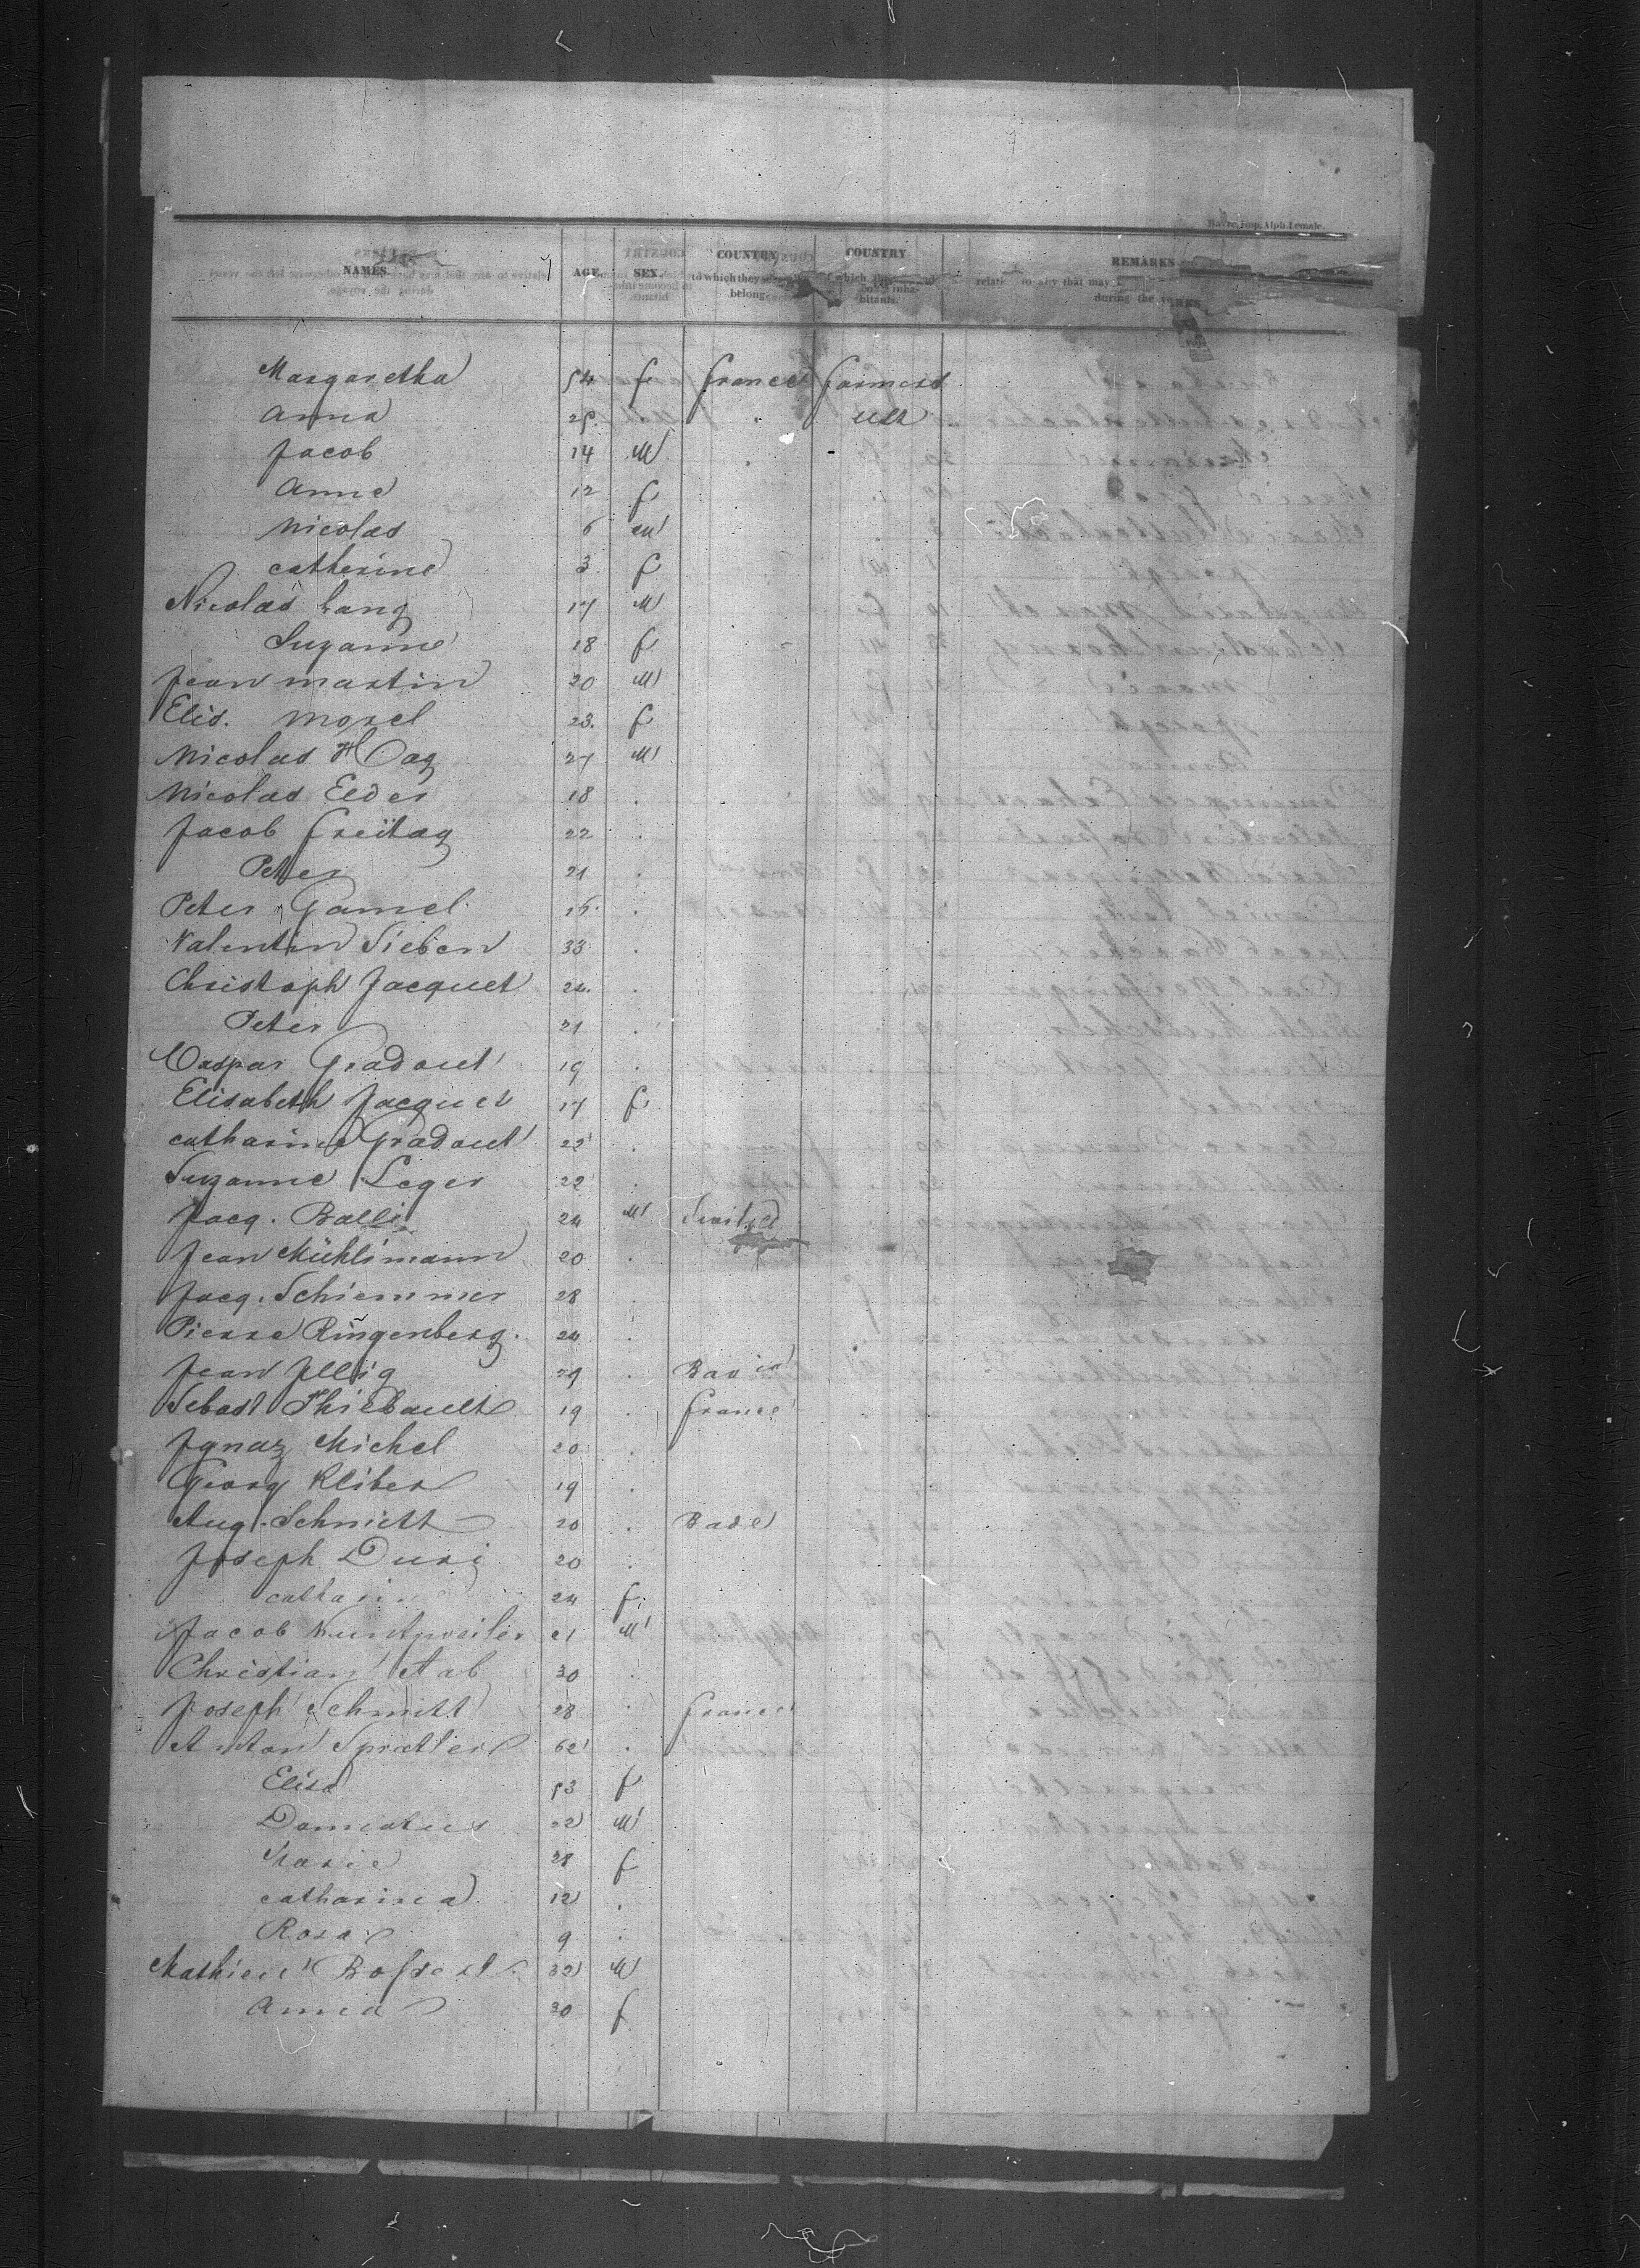 Havre, Imp. Alph. Lemale.
NAMES AGE SEX. COUNTRY to which they belong. COUNTRY of which inhabitants. REMARKS relative to any that may during the
Margaretha 54 f france farmers
Anna 25. . USA
Jacob 14 M .
Anna 12 f
Nicolas 6 M
catherine 3 f
Nicolas Lang 17 M
Suzanne 18 f
Jean martin 20 M
Elis. morel 23. f
Nicolas Haag 27 M
Nicolas Elder 18 .
Jacob freitag 22 .
Peter 21 .
Peter Gamel 26. .
Valentin Sieben 33 .
Christoph Jacquet 24. .
Peter 21 .
Caspar Gradoul 19 .
Elisabeth Jacquet 17 f
catharina Gradoul 22 .
Suzanne Leger 22 .
Jacq. Balli 24 M Switzld
Jean Mühlimann 20 .
Jacq. Schiemmer 28 .
Pierre Ringenberg. 24 .
Jean Jllig 29 . Bavia
Sebast Thiebault 19 . france
Jgnaz Michel 20 .
Georg Kliber 19 .
Aug. Schmitt 20 . Bade
Joseph Duri 20 .
catharine 24 f
Jacob Kuntzweiler 21 M
Christian Aab 30 .
Joseph Schmitt 28 . france
Anton Spratler 62 .
Elisa 53 f
22 M
Marie 28 f
catharina 12 .
Rosa 9 .
Mathieu 32 M
Anna 30 f